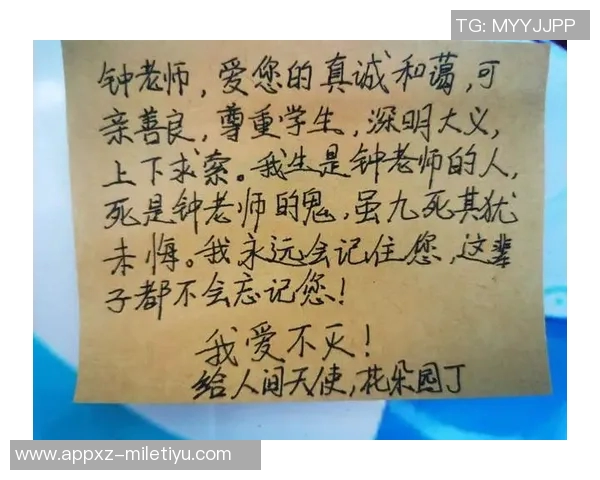 TG: MYYJJPP
钟老师，爱您的真诚和蔼，可
亲善良，尊重学生，深明大义，
上下求索。我生是钟老师的人，
死是钟老师的鬼，虽九死其犹
未悔。我永远会记住您，这辈
子都不会忘记您！
我爱不灭！
给人间天使，花朵园丁
www.appxz-miletiyu.com